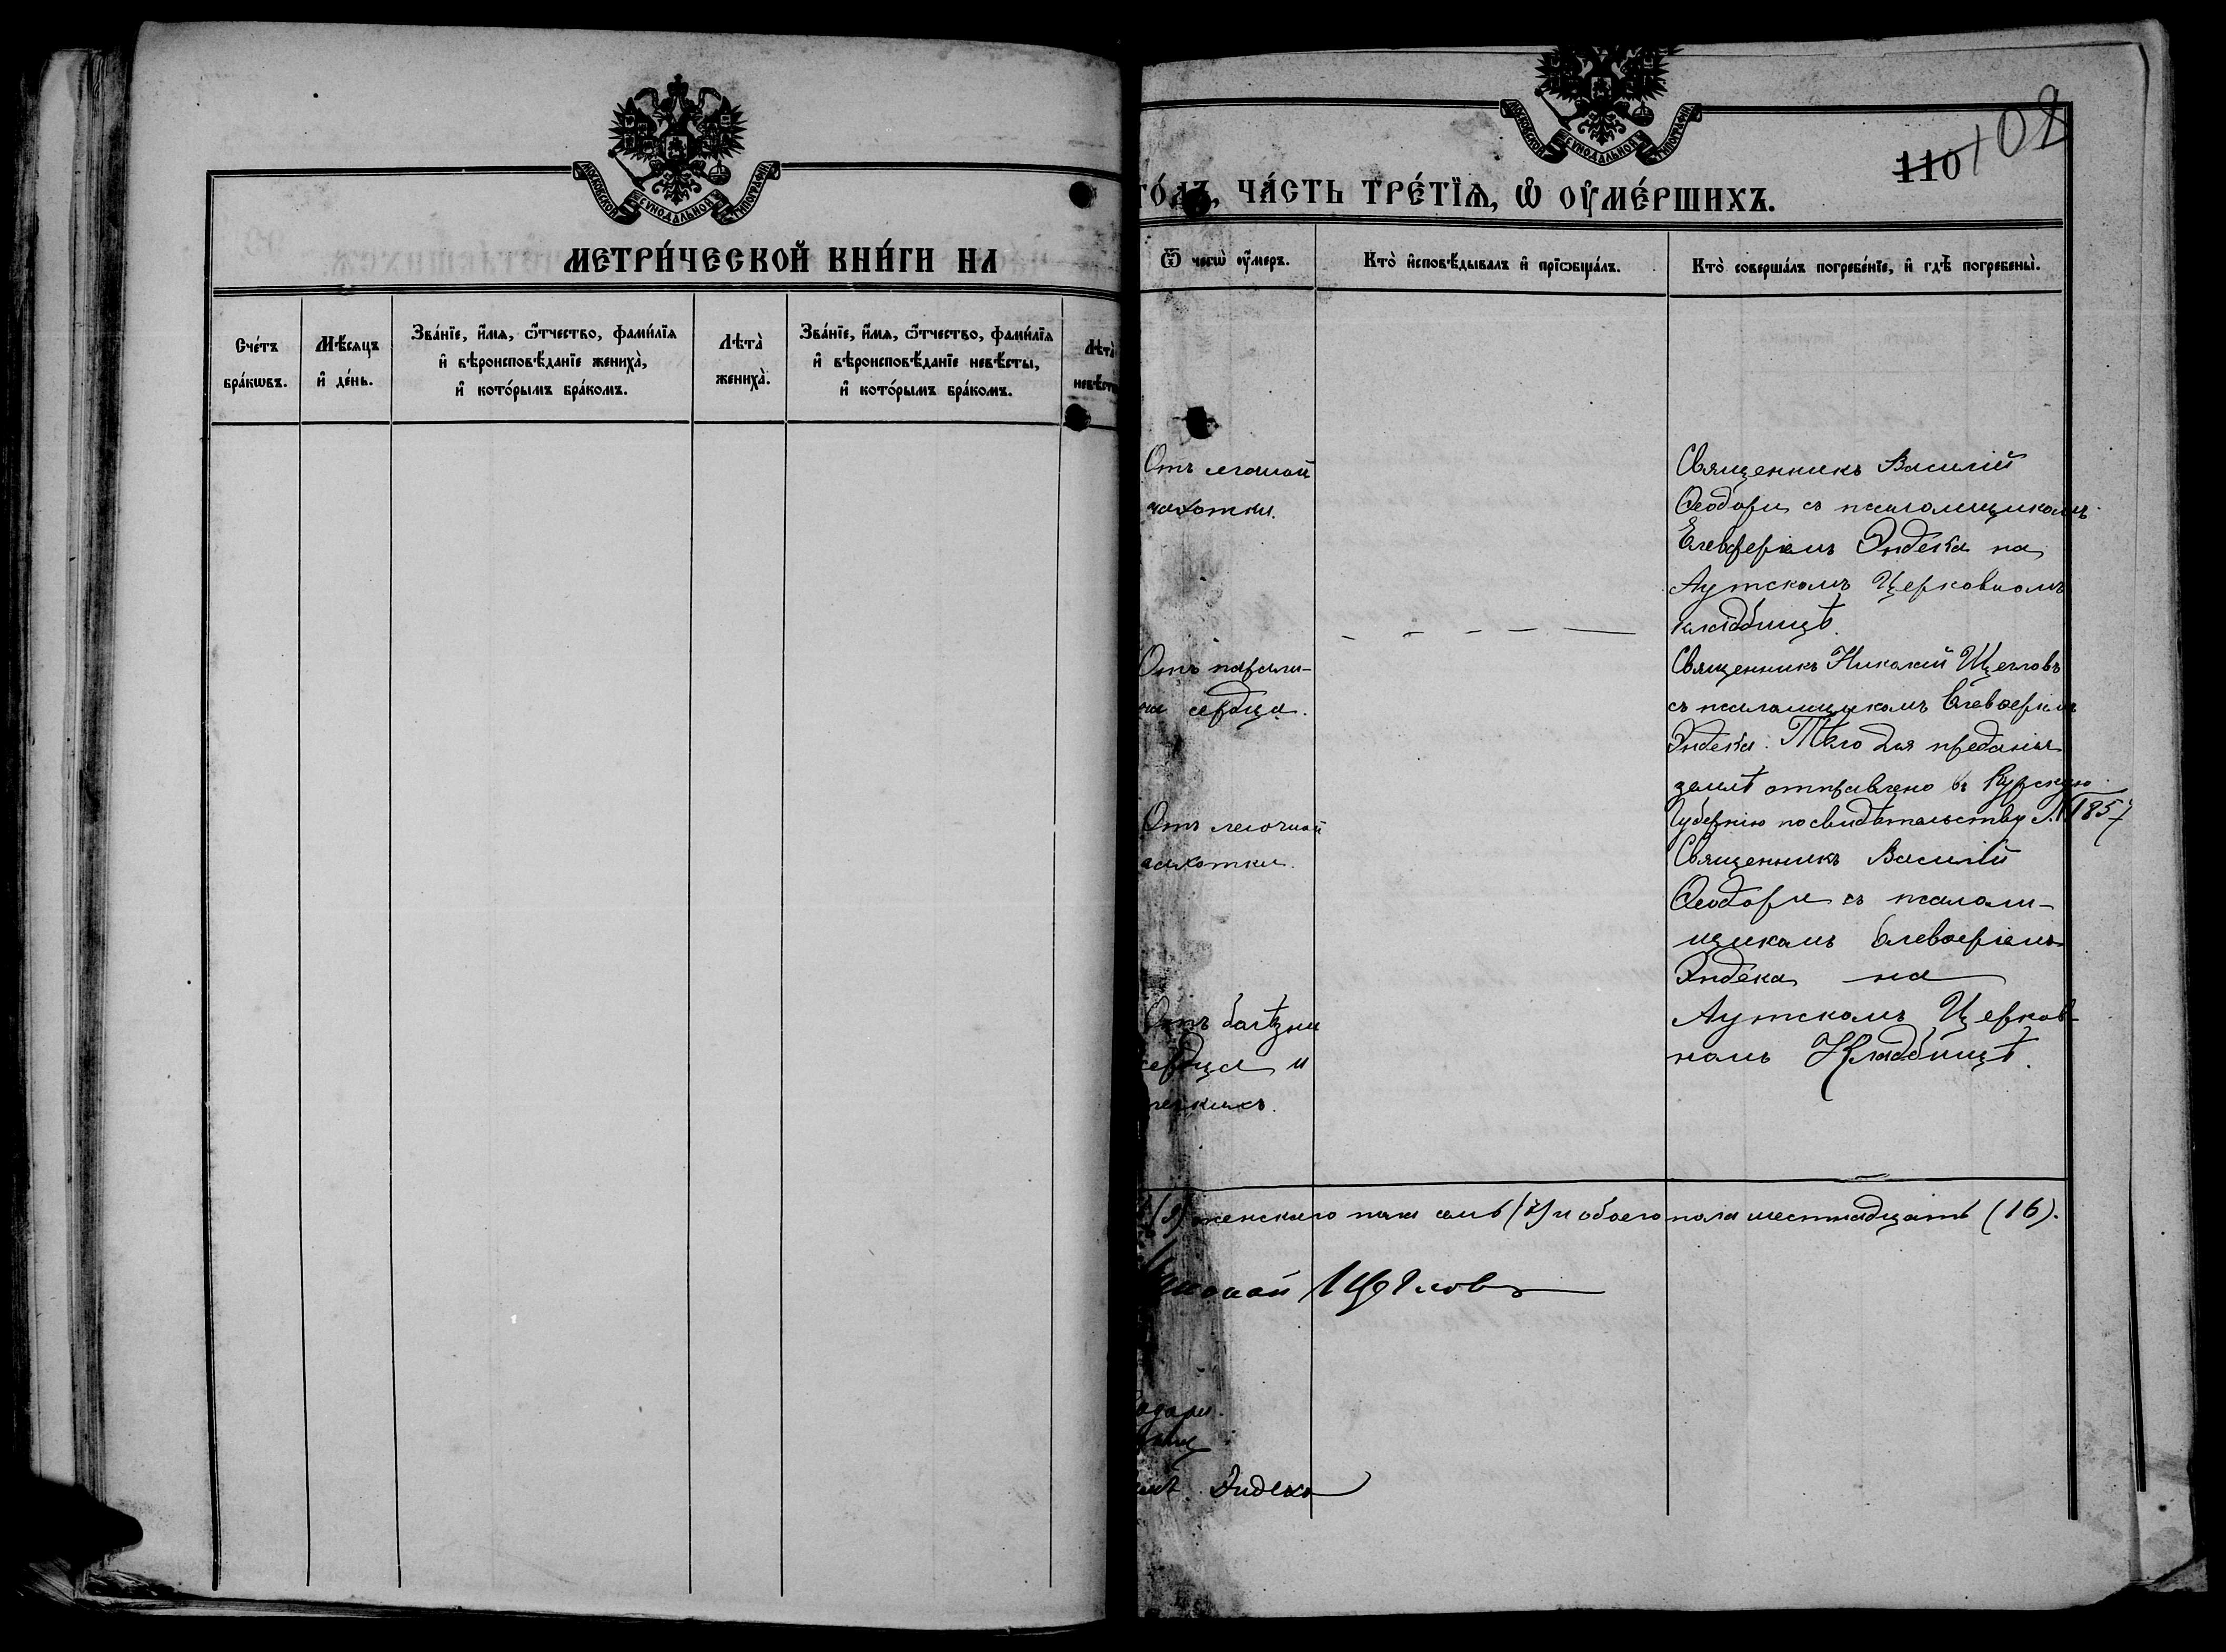 МОСКОВСКОЙ СѴНОДАЛЬНОЙ ТИПОГРАФІИ
МЕТРИ́ЧЕСКОЙ КНИ́ГИ НА
Сче́тъ бра́кѡвъ.
Мѣ́сяцъ и҆ де́нь.
Зва́нїе, и҆́мѧ, ѻ҆́тчество, фами́лїѧ
и҆ вѣроисповѣ́данїе жениха̀,
и҆ кото́рымъ бра́комъ.
Лѣта̀ жениха̀.
Зва́нїе, и҆́мѧ, ѻ҆́тчество, фами́лїѧ
и҆ вѣроисповѣ́данїе невѣ́сты,
и҆ кото́рымъ бра́комъ.
Лѣта̀
невѣсты
МОСКОВСКОЙ СѴНОДАЛЬНОЙ ТИПОГРАФІИ
110 102
ЧА́СТЬ ТРЕ́ТЇѦ, Ѡ҆ ОУ҆МЕ́РШИХЪ.
Ѿ чегѡ̀ ᲂу҆́меръ.
Кто̀ и҆сповѣ́дывалъ и҆ прїѡбща́лъ.
Кто̀ соверша́лъ погребе́нїе, и҆ гдѣ̀ погребены̀.
Отъ легочной
чахотки.
Священникъ Василій
Ѳеодори съ псаломщикомъ
Елевѳеріемъ Эндека на
Аутскомъ Церковномъ
кладбищѣ.
Отъ парали-
ча сердца.
Священникъ Николай Щегловъ
съ псаломщикомъ Елевѳеріемъ
Эндека. Тѣло для преданія
землѣ отправлено въ Курскую
Губернію по свидѣтельству № 1857
Отъ легочной
чахотки.
Священникъ Василій
Ѳеодори съ псалом-
щикомъ Елевѳеріемъ
Эндека на
Аутскомъ Церков-
номъ Кладбищѣ.
Отъ болѣзни
сердца и
легкихъ.
(9) женскаго пола семь (7) и обоего пола шестнадцать (16).
Николай Щегловъ
Эндека